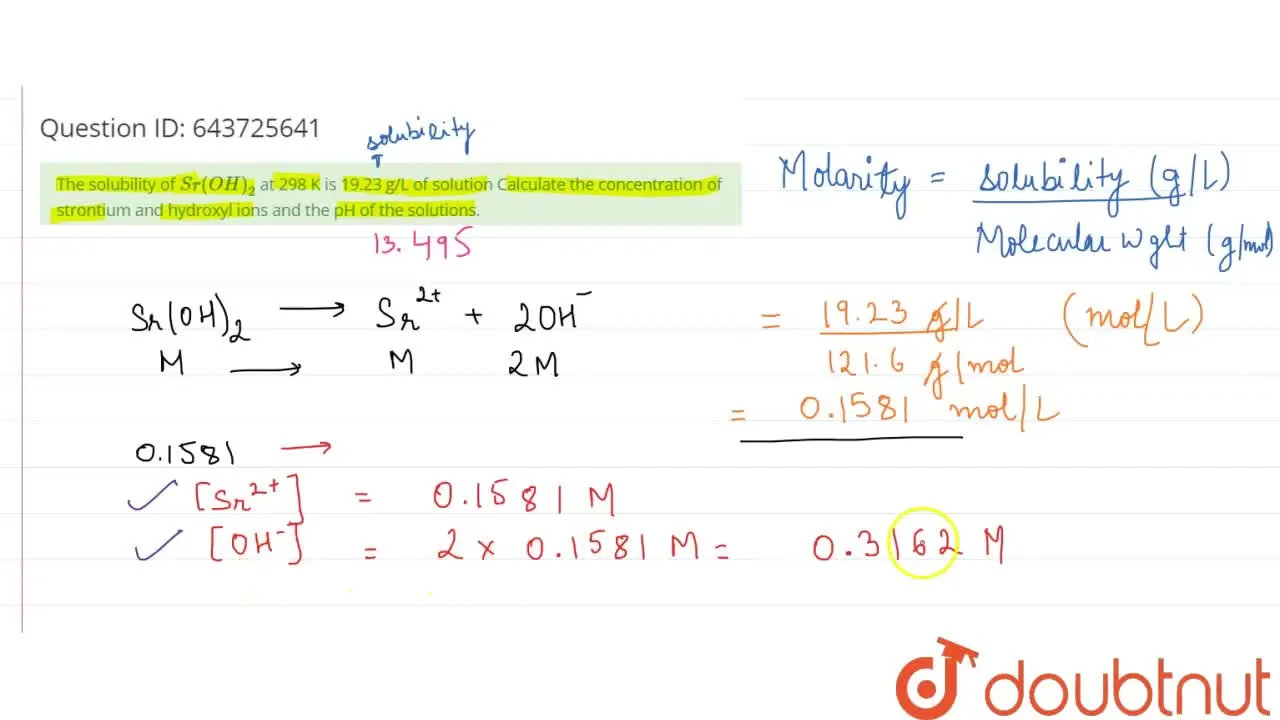 Question ID: 643725641
solubility
The solubility of Sr(OH)₂ at 298 K is 19.23 g/L of solution Calculate the concentration of
strontium and hydroxyl ions and the pH of the solutions.
13.495
Molarity = solubility (g/L)
Molecular wght (g/mol)
= 19.23 g/L (mol/L)
121.6 g/mol
= 0.1581 mol/L
Sr(OH)₂ ⟶ Sr²⁺ + 2OH⁻
M ⟶ M 2M
0.1581 ⟶
✓ [Sr²⁺] = 0.1581 M
✓ [OH⁻] = 2 × 0.1581 M = 0.3162 M
doubtnut